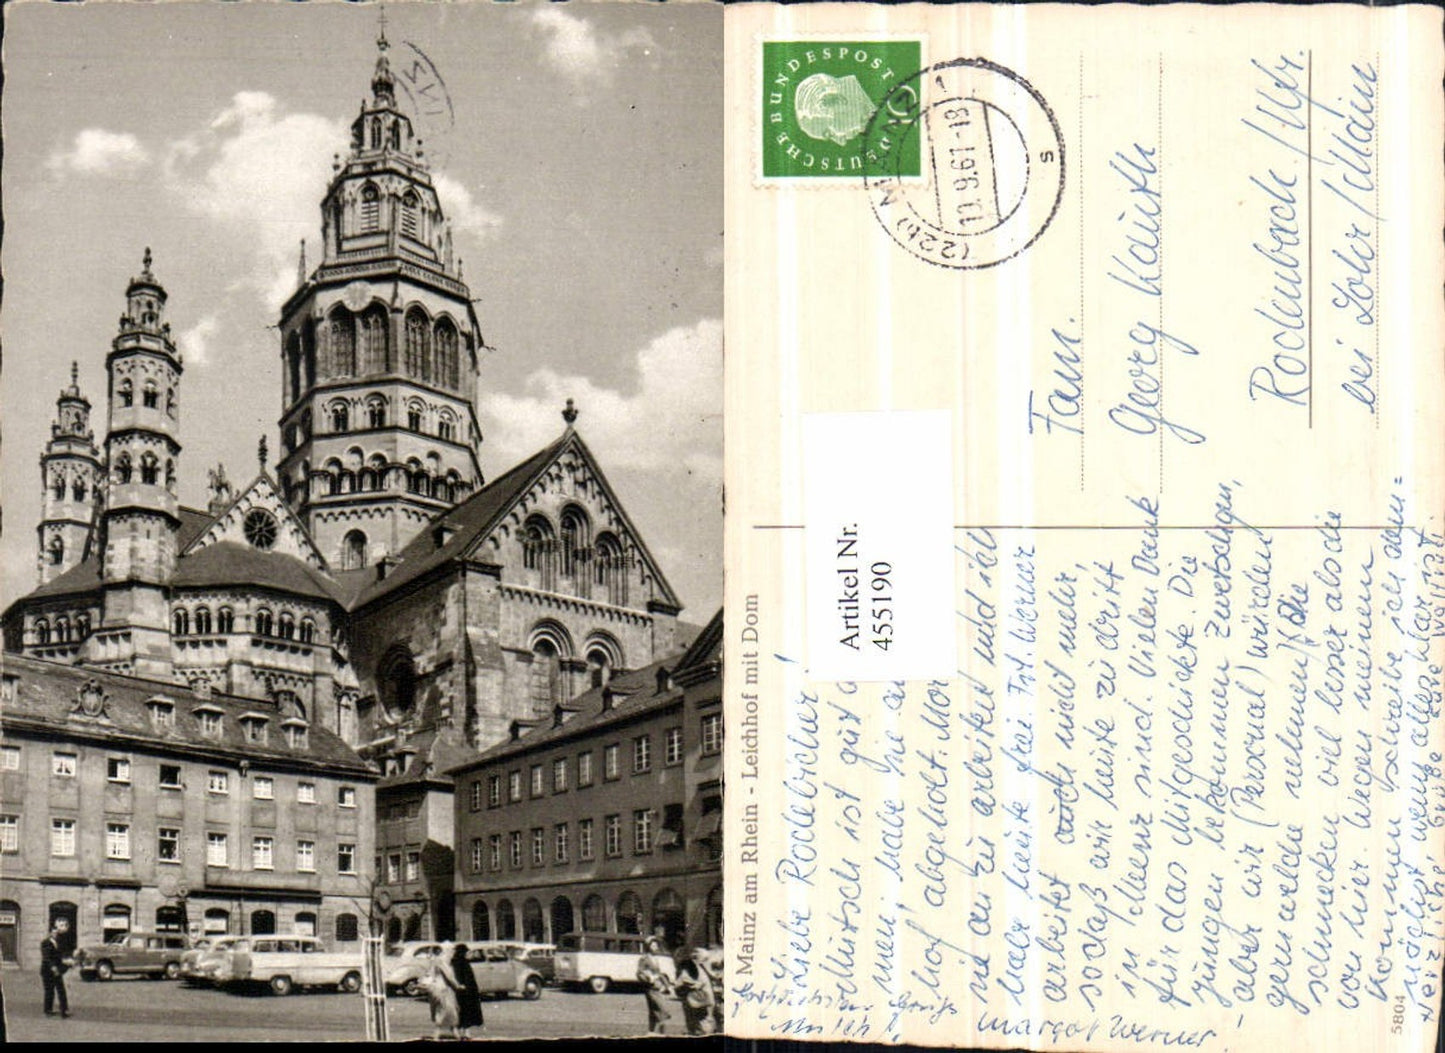 DEUTSCHE BUNDESPOST
(22b) MAINZ 1
10.9.61-18
s
Fam.
Georg Kauth
Rodenbach /Ufr.
bei Lohr/Main
Artikel Nr.
455190
Mainz am Rhein - Leichhof mit Dom
5804
Liebe Rodebicher!
Mutsch ist gut
men, habe sie
hof abgeholt. Mor
nie an zu arbeiten und ich
habe heute frei. Frl. Werner
arbeitet auch nicht mehr,
sodaß wir heute zu dritt
in Meenz sind. Vielen Dank
für das Mitgeschickte. Die
Jungen bekommen Zwetschgen,
aber wir (Personal) würden
gern welche nehmen! Die
schmecken viel besser als die
von hier. Wegen meinem
Kommen schreibe ich dem=
nächst, wenn alles klar ist.
Herzliche Grüße Eure dankbar
Margot Werner!